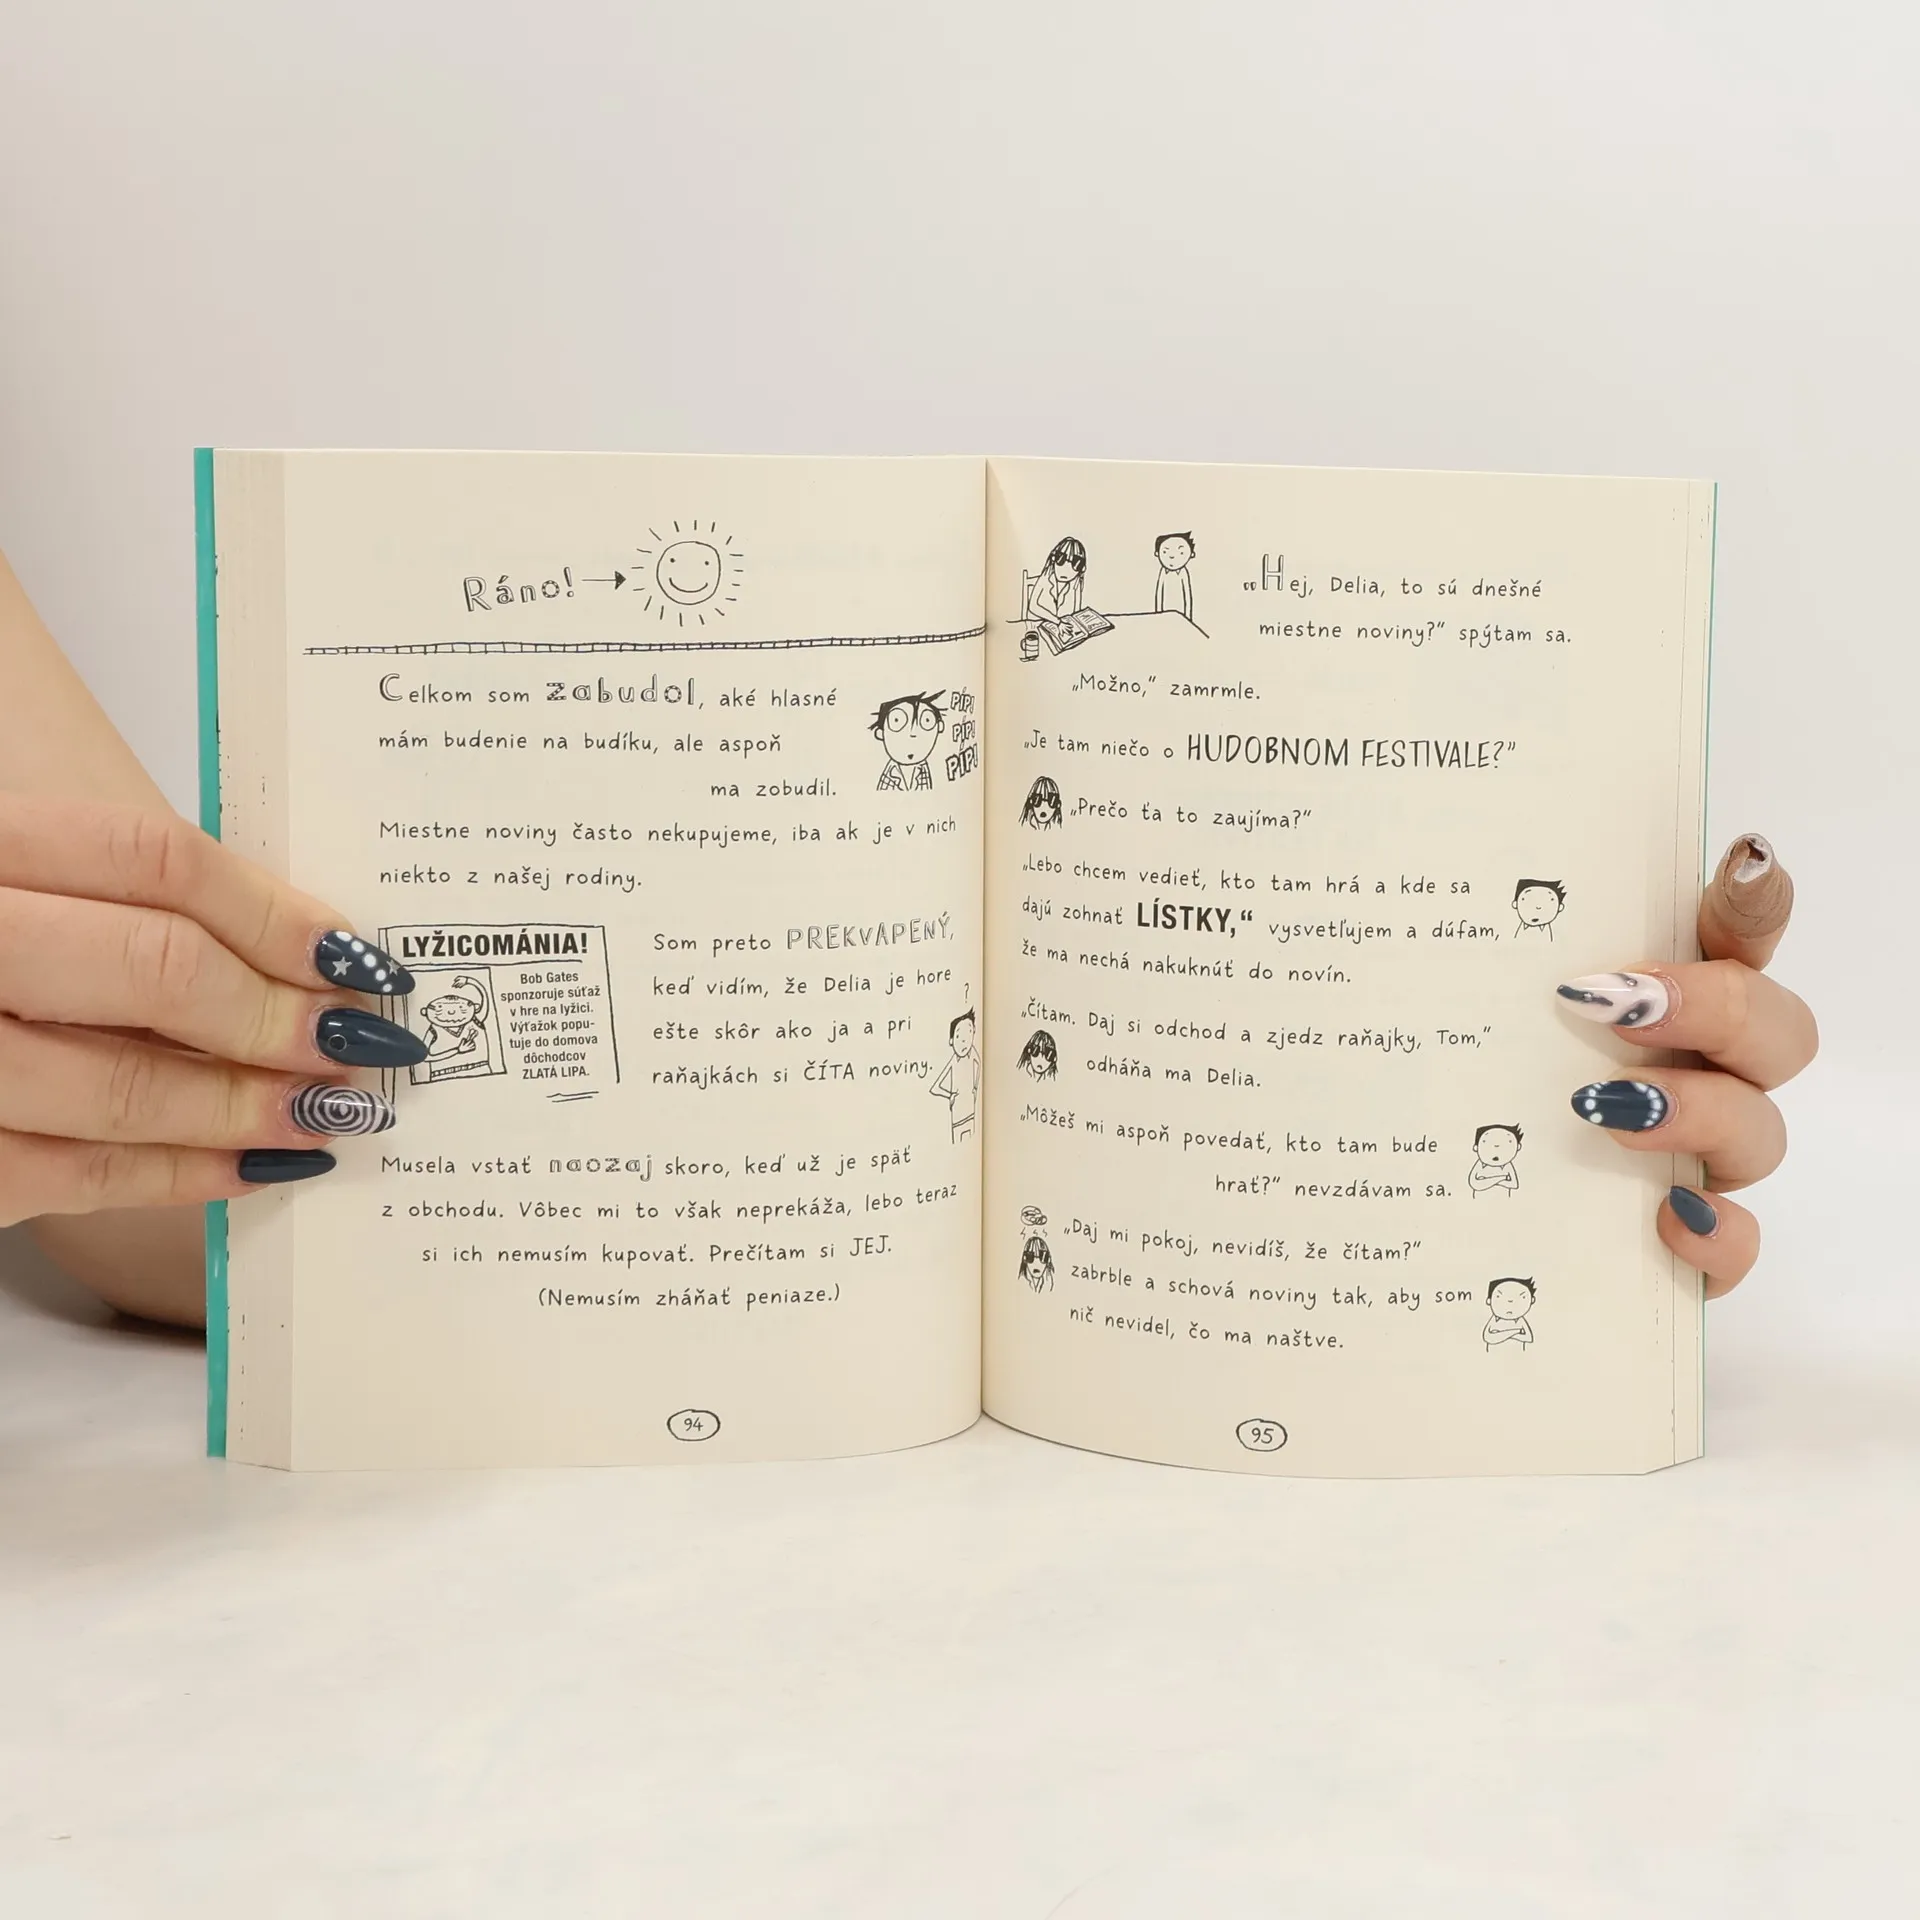 Ráno!
Celkom som zabudol, aké hlasné
mám budenie na budíku, ale aspoň
ma zobudil.
PÍP!
PÍP!
PÍP!
Miestne noviny často nekupujeme, iba ak je v nich
niekto z našej rodiny.
LYŽICOMÁNIA!
Bob Gates
sponzoruje súťaž
v hre na lyžici.
Výťažok popu-
tuje do domova
dôchodcov
ZLATÁ LIPA.
Som preto PREKVAPENÝ,
keď vidím, že Delia je hore
ešte skôr ako ja a pri
raňajkách si ČÍTA noviny.
?
Musela vstať naozaj skoro, keď už je späť
z obchodu. Vôbec mi to však neprekáža, lebo teraz
si ich nemusím kupovať. Prečítam si JEJ.
(Nemusím zháňať peniaze.)
94
„Hej, Delia, to sú dnešné
miestne noviny?“ spýtam sa.
„Možno,“ zamrmle.
„Je tam niečo o HUDOBNOM FESTIVALE?“
„Prečo ťa to zaujíma?“
„Lebo chcem vedieť, kto tam hrá a kde sa
dajú zohnať LÍSTKY,“ vysvetľujem a dúfam,
že ma nechá nakuknúť do novín.
„Čítam. Daj si odchod a zjedz raňajky, Tom,“
odháňa ma Delia.
„Môžeš mi aspoň povedať, kto tam bude
hrať?“ nevzdávam sa.
„Daj mi pokoj, nevidíš, že čítam?“
zabrble a schová noviny tak, aby som
nič nevidel, čo ma naštve.
95